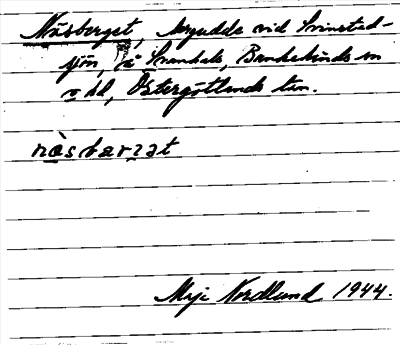 Näsberget, bergudde vid Svinstad-
sjön, i Svanhals, Bankekinds sn
o hd, Östergötlands län.
nàsbærɜət
Maja Nordlund 1944.